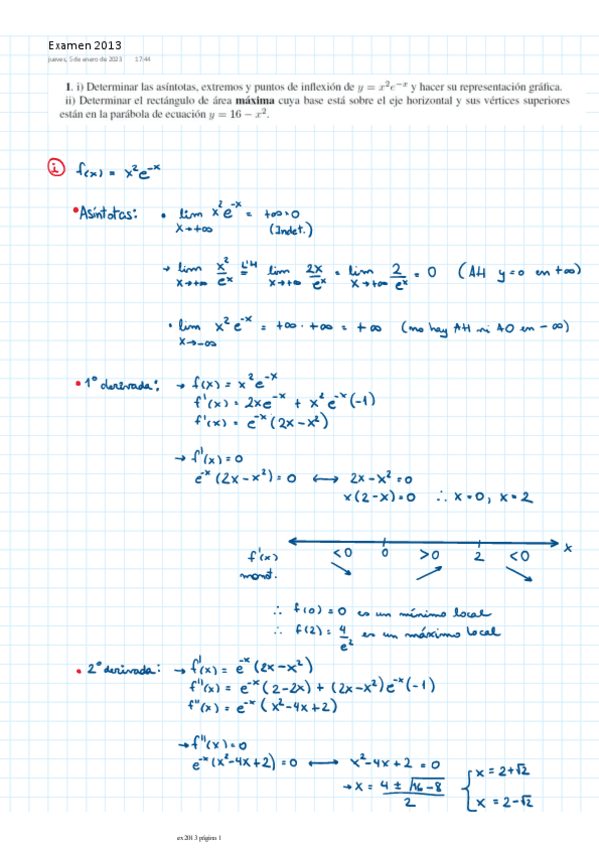 Examen 2013
jueves, 5 de enero de 2023 17:44
1. i) Determinar las asíntotas, extremos y puntos de inflexión de y = x²e⁻ˣ y hacer su representación gráfica.
ii) Determinar el rectángulo de área máxima cuya base está sobre el eje horizontal y sus vértices superiores
están en la parábola de ecuación y = 16 − x².
i) f(x) = x²e⁻ˣ
• Asíntotas: • lim x→+∞ x²e⁻ˣ = +∞·0 (Indet.)
→ lim x→+∞ x²/eˣ L'H = lim x→+∞ 2x/eˣ = lim x→+∞ 2/eˣ = 0 (AH y=0 en +∞)
• lim x→-∞ x²e⁻ˣ = +∞·+∞ = +∞ (no hay AH ni AO en -∞)
• 1º derivada: → f(x) = x²e⁻ˣ
f'(x) = 2xe⁻ˣ + x²e⁻ˣ(-1)
f'(x) = e⁻ˣ(2x-x²)
→ f'(x)=0
e⁻ˣ(2x-x²)=0 ⟷ 2x-x²=0
x(2-x)=0 ∴ x=0, x=2
f'(x) <0 0 >0 2 <0 x
monot. ↘ ↗ ↘
∴ f(0)=0 es un mínimo local
∴ f(2)=4/e² es un máximo local
• 2º derivada: → f'(x) = e⁻ˣ(2x-x²)
f''(x) = e⁻ˣ(2-2x) + (2x-x²)e⁻ˣ(-1)
f''(x) = e⁻ˣ(x²-4x+2)
→ f''(x)=0
e⁻ˣ(x²-4x+2)=0 ⟷ x²-4x+2=0
→ x = (4±√16-8)/2 { x=2+√2
x=2-√2
ex2013 página 1